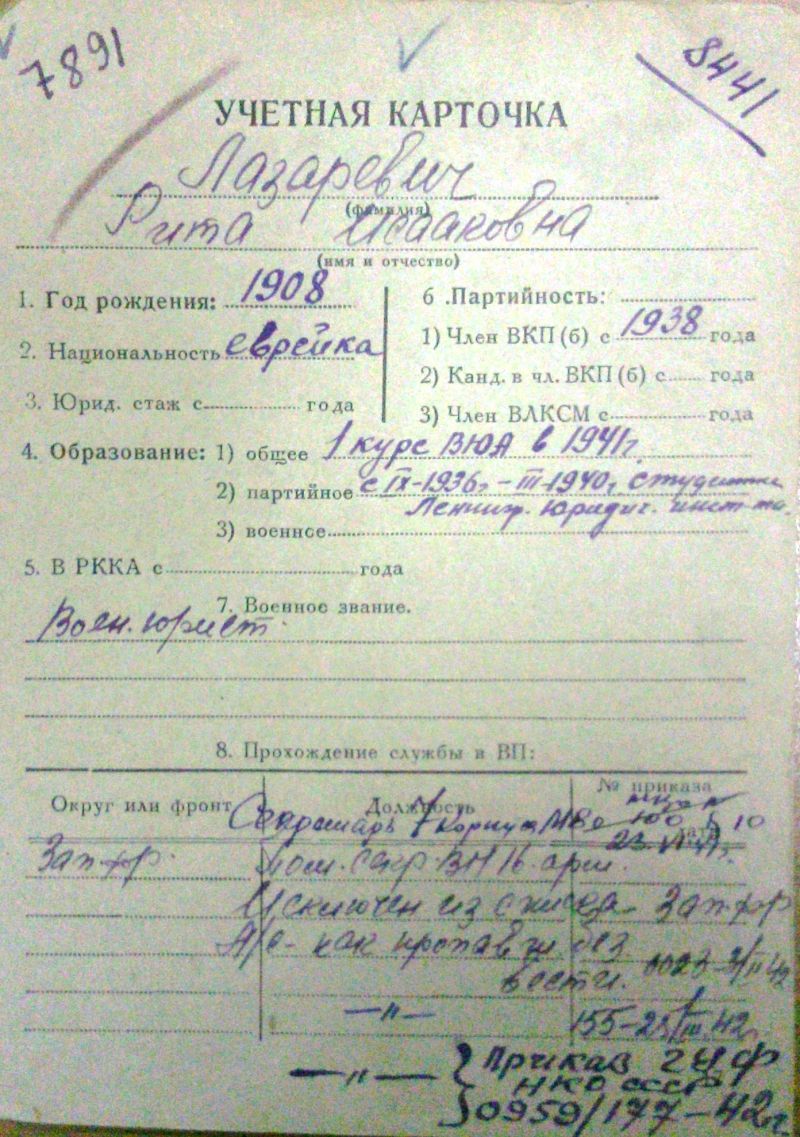 7891
8441
УЧЕТНАЯ КАРТОЧКА
Лазаревич
(фамилия)
Рита Исааковна
(имя и отчество)
1. Год рождения: 1908
2. Национальность еврейка
3. Юрид. стаж с года
6. Партийность:
1) Член ВКП(б) с 1938 года
2) Канд. в чл. ВКП(б) с года
3) Член ВЛКСМ с года
4. Образование: 1) общее 1 курс ВЮА в 1941г.
2) партийное с IX-1936г.-III-1940г. студентка
Ленингр. Юридич. инст-та.
3) военное
5. В РККА с года
7. Военное звание.
Воен. юрист
8. Прохождение службы в ВП:
Округ или фронт Должность № приказа
Секретарь 7 корпуса дата
Зап. фр. пом. секр. ВП 16 арм.
Исключен из списка Зап фр
как пропавши без 0023
вести.
—"— 155-
—"— } Приказ ГУФ
НКО СССР
0959/177-42г.